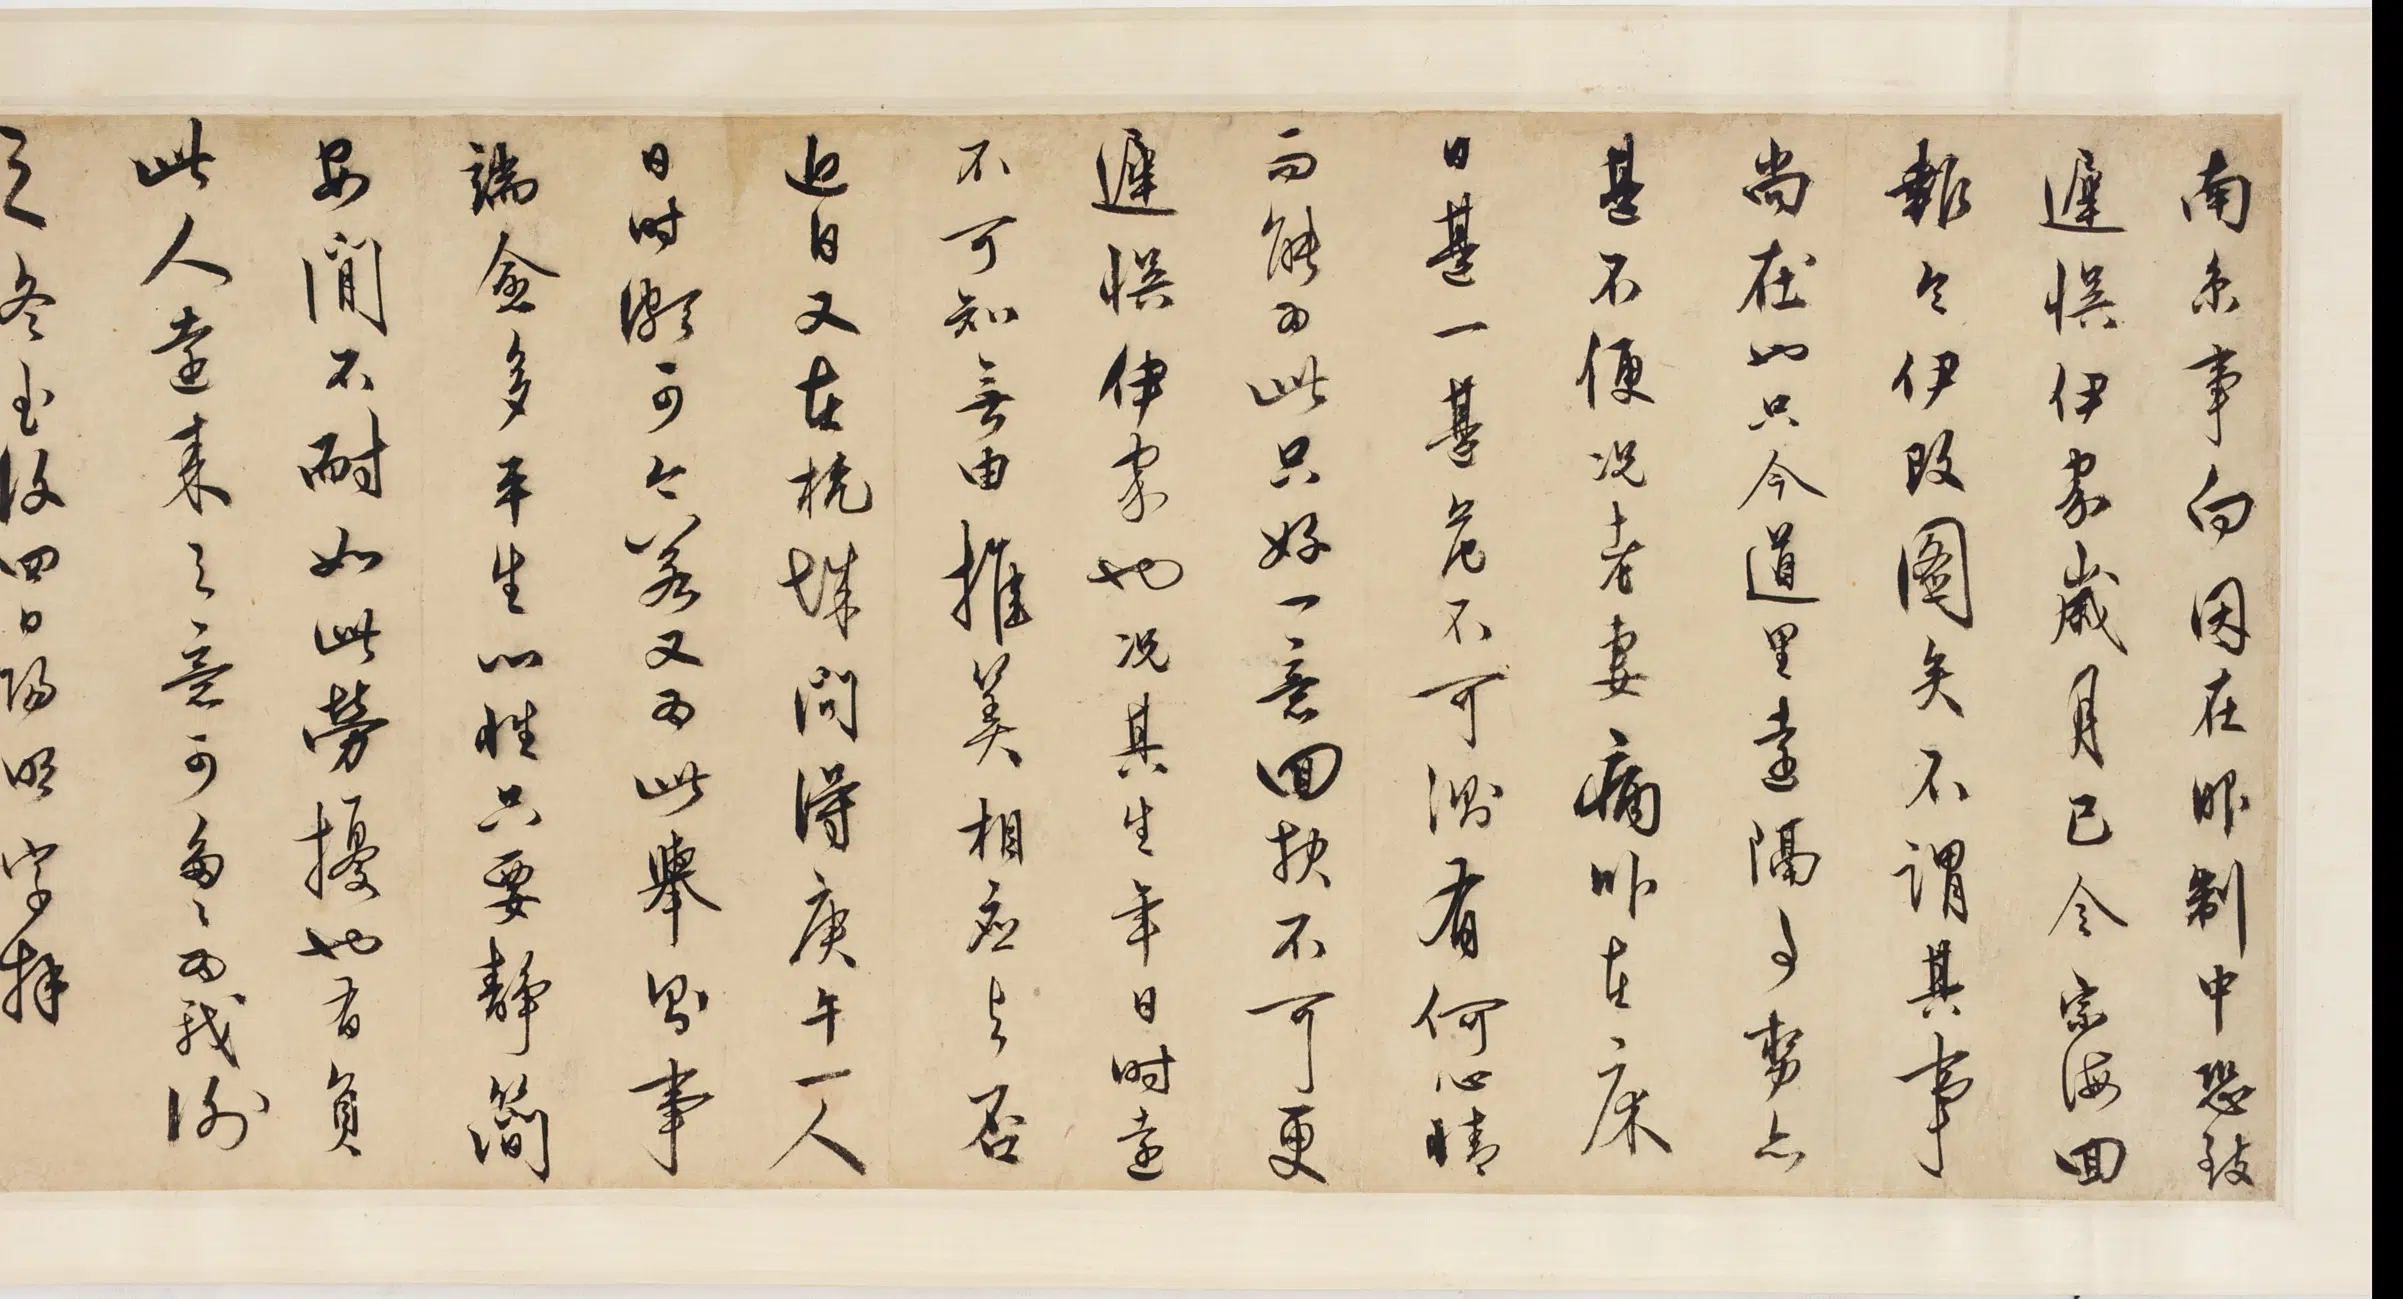 南京事向因在服制中恐致
遲悞伊家歲月已令宗海回
報令伊改圖矣不謂其事
尚在也只今道里遠隔事勢亦
甚不便況老妻病卧在床
日甚一日危不可測有何心情
而能為此只好一意回抶不可更
遲悞伊家也況其生年日時遠
不可知無由推筭相應與否
近日又在杭城問得庚午一人
日時頗可合若又為此舉則事
端愈多平生心性只要靜簡
安閒不耐如此勞擾也有負
此人遠來之意可多多為我謝
之 冬至後四日陽明字拜